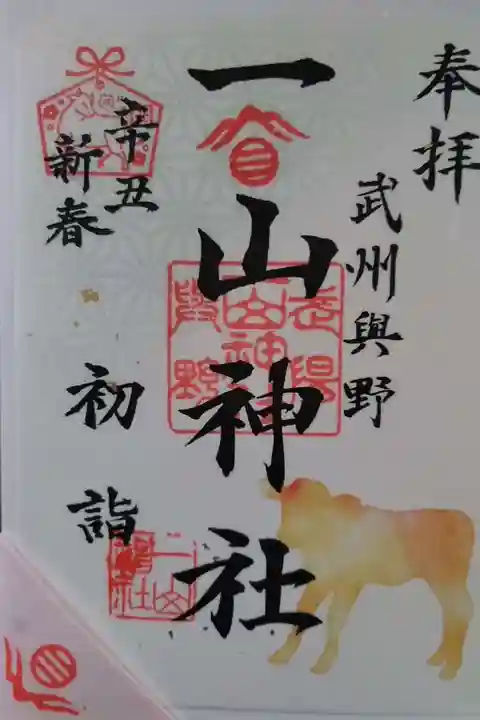 奉拝
武州與野
一山神社
辛丑
新春
初詣